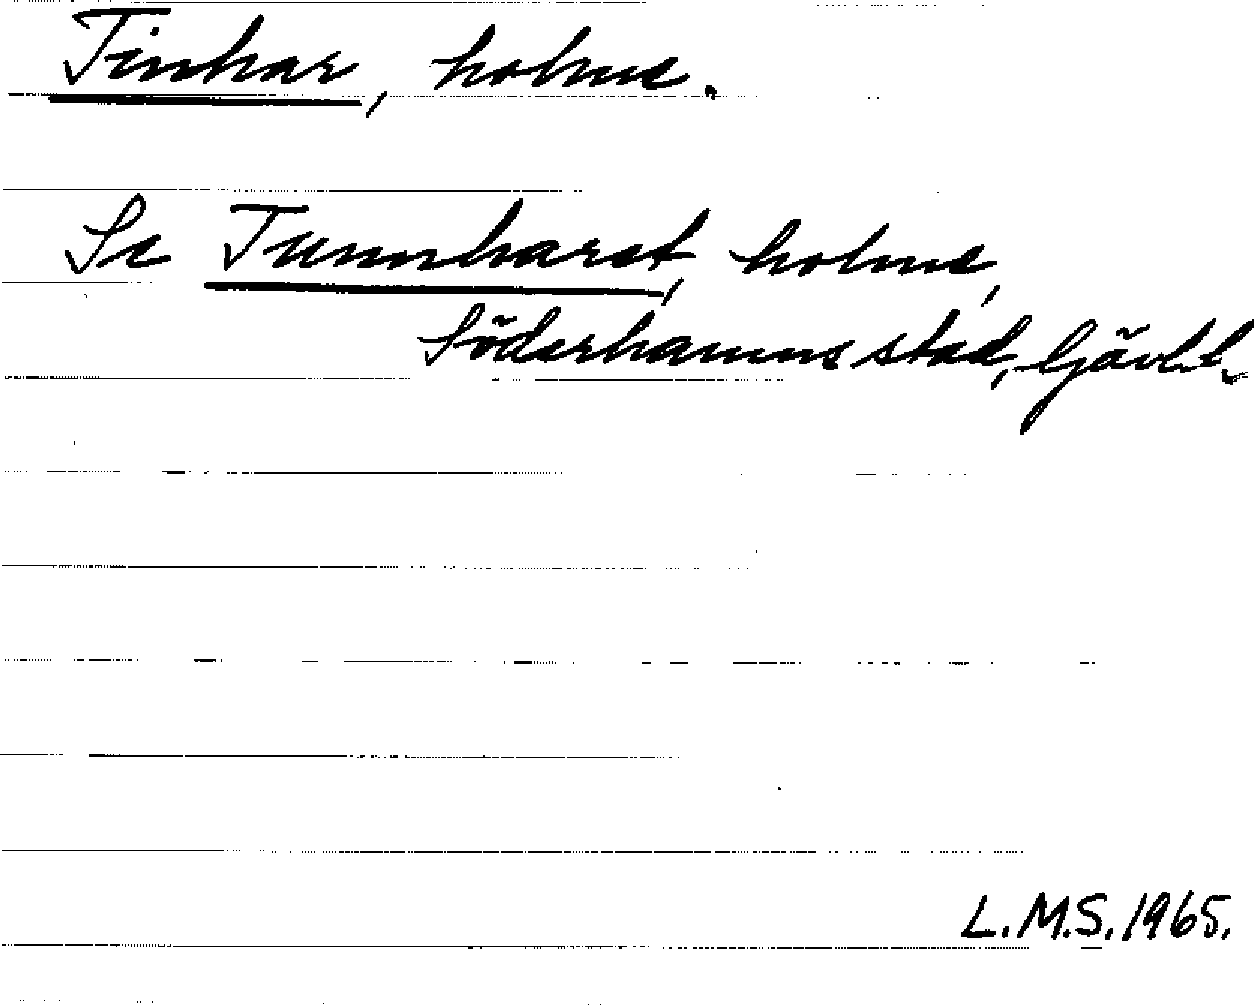 Tinhar, holme.
Se Tunnharet, holme,
Söderhamns stad, Gävl.l.
L.M.S. 1965.